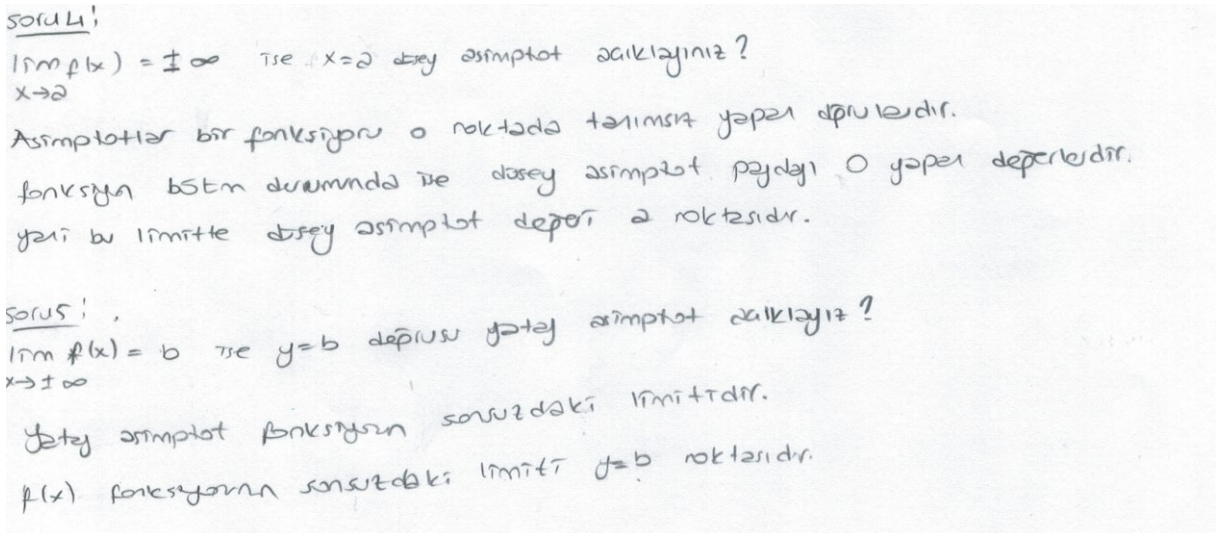 soru 4:
lim f(x) = ±∞ ise x=a düşey asimptot açıklayınız?
x→a
Asimptotlar bir fonksiyonu o noktada tanımsız yapan doğrulardır.
fonksiyon kesrin durumunda ise düşey asimptot paydayı 0 yapan değerlerdir.
yani bu limitte düşey asimptot değeri a noktasıdır.
soru 5:
lim f(x) = b ise y=b doğrusu yatay asimptot açıklayız?
x→±∞
Yatay asimptot fonksiyonun sonsuzdaki limitidir.
f(x) fonksiyonun sonsuzdaki limiti y=b noktasıdır.